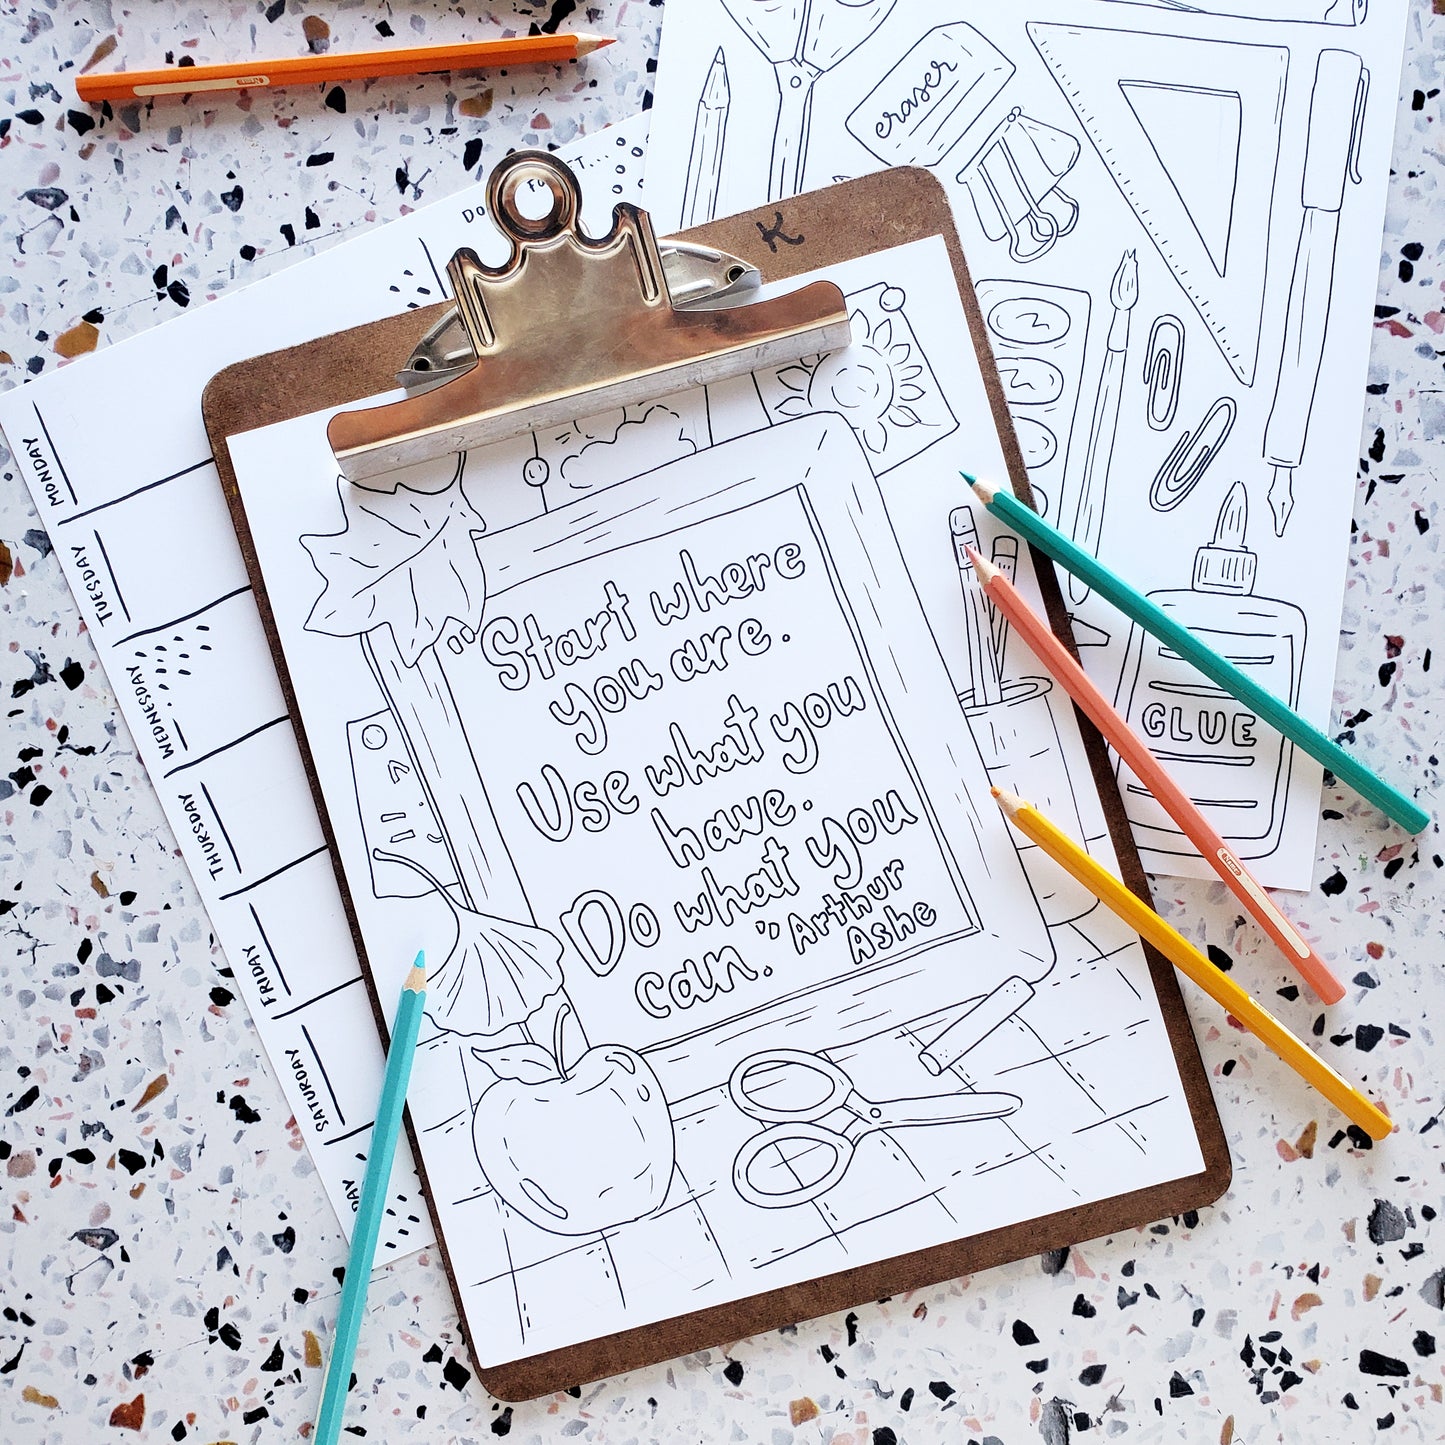 Do
Fo
T....
K
eraser
MONDAY
TUESDAY
WEDNESDAY
THURSDAY
FRIDAY
SATURDAY
DAY
"Start where
you are.
Use what you
have.
Do what you
can." Arthur
Ashe
GLUE